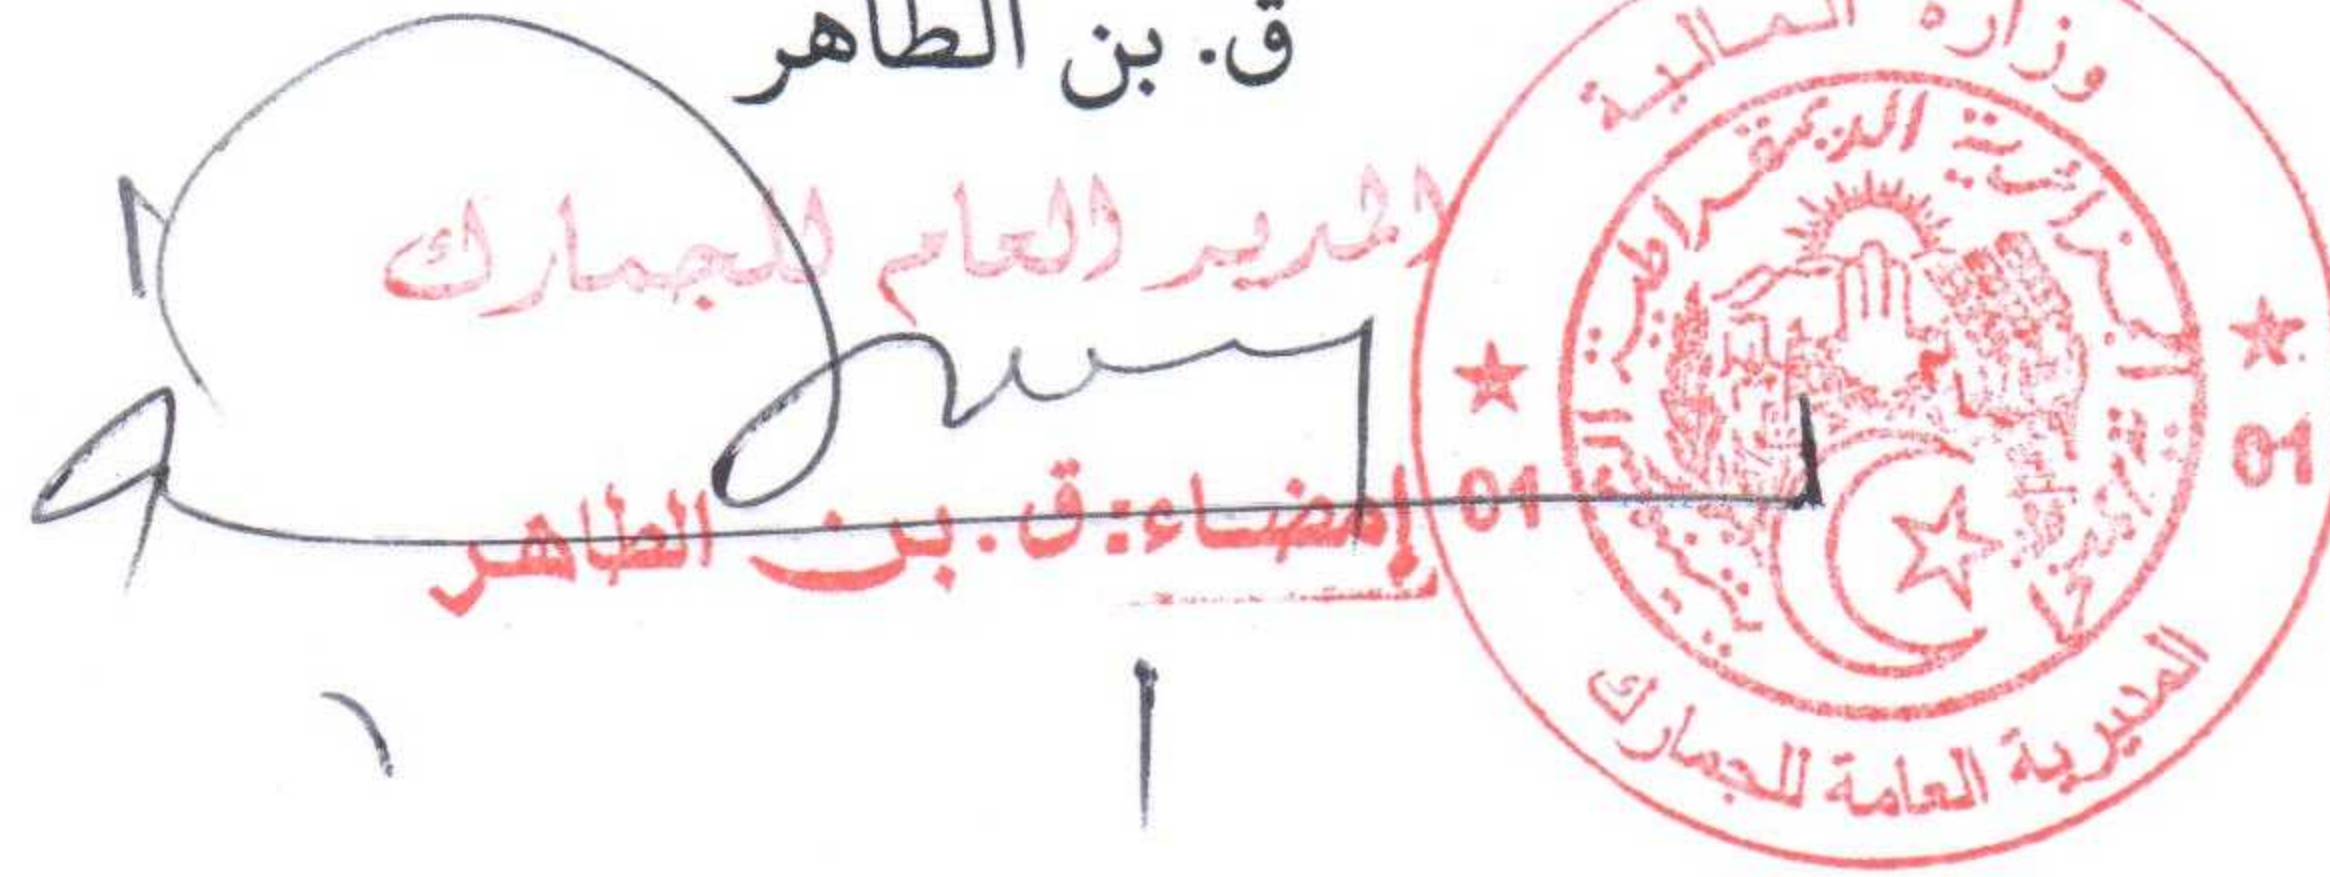 ق. بن الطاهر
المدير العام للجمارك
إمضاء: ق. بن الطاهر
وزارة المالية
الجمهورية الجزائرية الديمقراطية الشعبية
المديرية العامة للجمارك
01
01